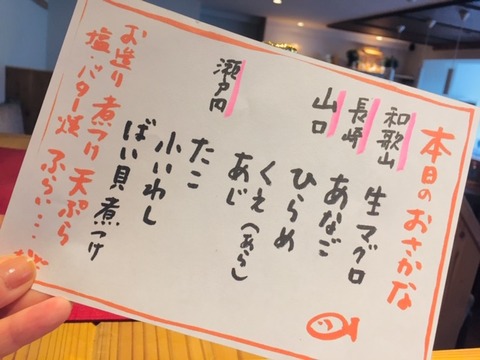 本日のおさかな
和歌山 生マグロ
長崎 あなご
山口 ひらめ
くえ(あら)
あじ
瀬戸内 たこ
小いわし
ばい貝煮つけ
お造り 煮つけ 天ぷら
塩・バター焼 ふらい・・・